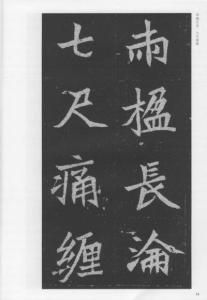 兩楹長淪
七尺痛纏